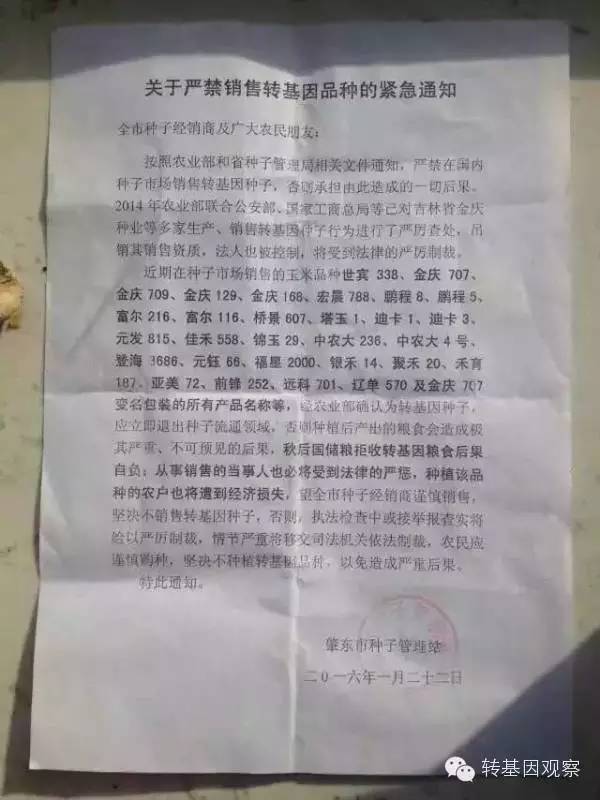 关于严禁销售转基因品种的紧急通知
全市种子经销商及广大农民朋友：
按照农业部和省种子管理局相关文件通知，严禁在国内
种子市场销售转基因种子，否则承担由此造成的一切后果。
2014年农业部联合公安部、国家工商总局等已对吉林省金庆
种业等多家生产、销售转基因种子行为进行了严厉查处，吊
销其销售资质，法人也被控制，将受到法律的严厉制裁。
近期在种子市场销售的玉米品种世宾 338、金庆 707、
金庆 709、金庆 129、金庆 168、宏晨 788、鹏程 8、鹏程 5、
富尔 216、富尔 116、桥景 607、塔玉 1、迪卡 1、迪卡 3、
元发 815、佳禾 558、锦玉 29、中农大 236、中农大 4 号、
登海 3686、元钰 66、福星 2000、银禾 14、聚禾 20、禾育
187、亚美 72、前锋 252、远科 701、辽单 570 及金庆 707
变名包装的所有产品名称等，经农业部确认为转基因种子，
应立即退出种子流通领域，否则种植后产出的粮食会造成极
其严重、不可预见的后果，秋后国储粮拒收转基因粮食后果
自负；从事销售的当事人也必将受到法律的严惩，种植该品
种的农户也将遭到经济损失，望全市种子经销商谨慎销售，
坚决不销售转基因种子，否则，执法检查中或接举报查实将
给以严厉制裁，情节严重将移交司法机关依法制裁，农民应
谨慎购种，坚决不种植转基因品种，以免造成严重后果。
特此通知。
肇东市种子管理站
二〇一六年一月二十二日
转基因观察